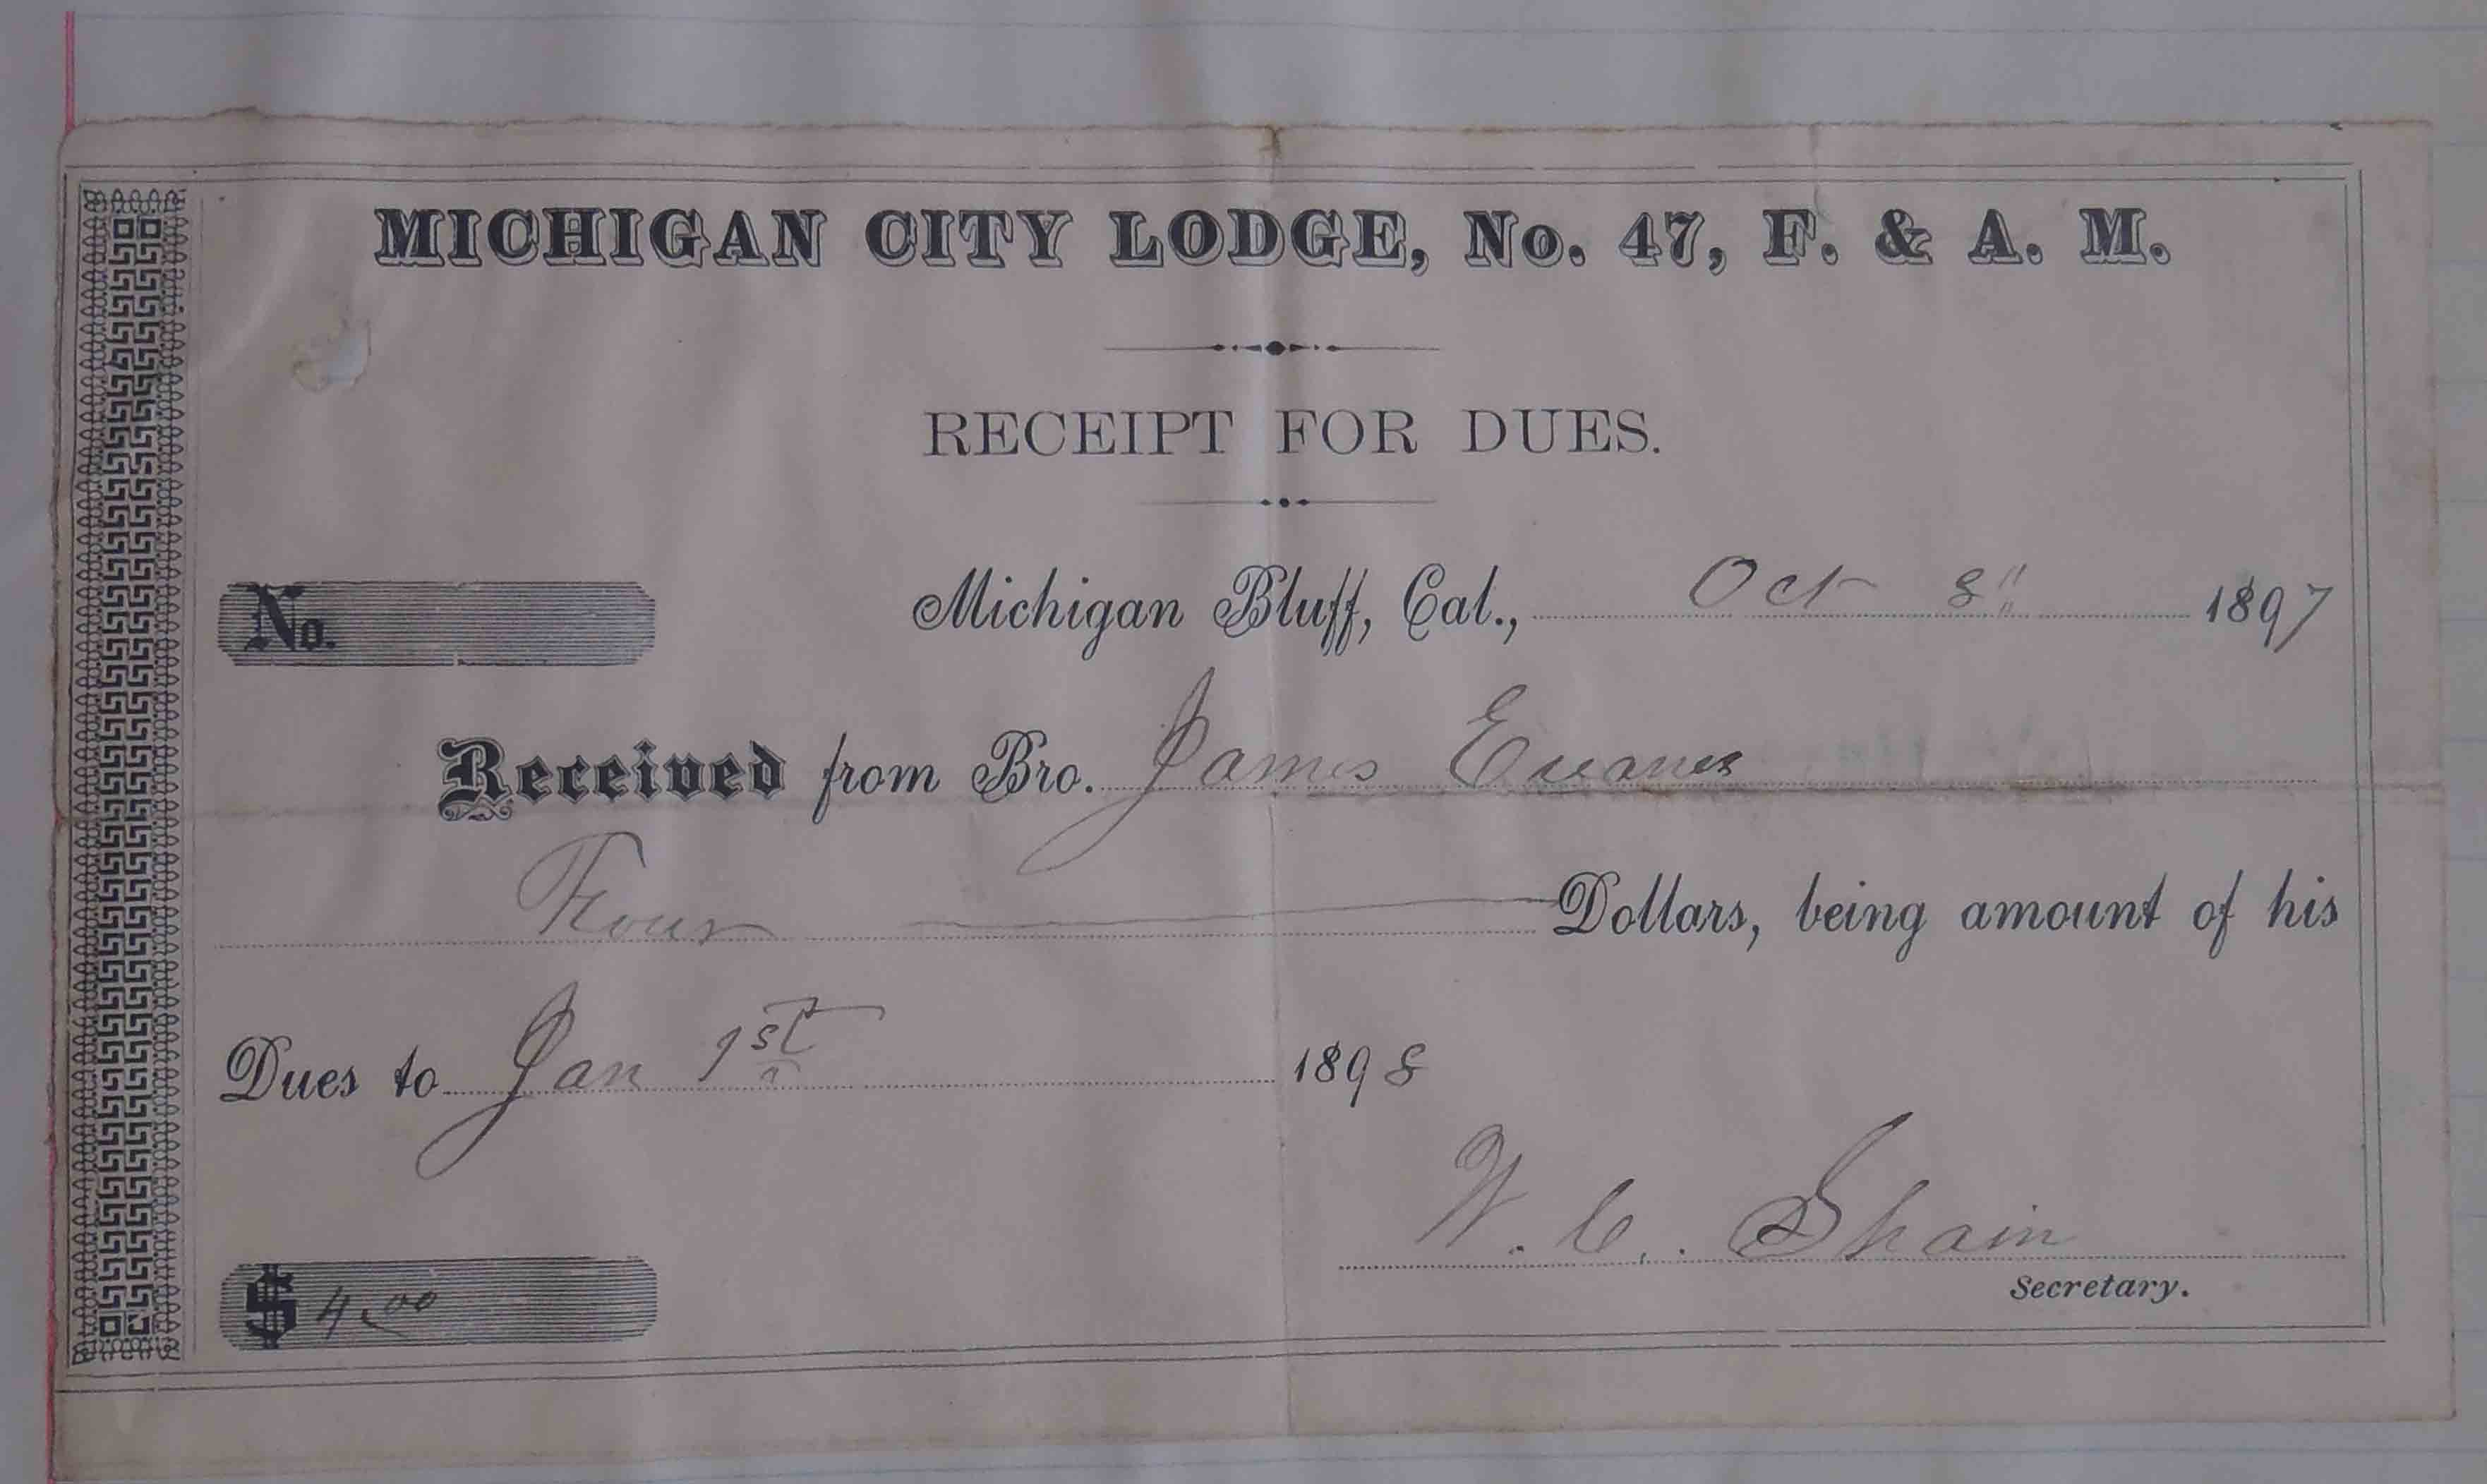 MICHIGAN CITY LODGE, No. 47, F. & A. M.
RECEIPT FOR DUES.
No. Michigan Bluff, Cal., Oct 8" 1897
Received from Bro. James Evans
Four Dollars, being amount of his
Dues to Jan 1st 1898
W. C. Shain
Secretary.
$ 4.00